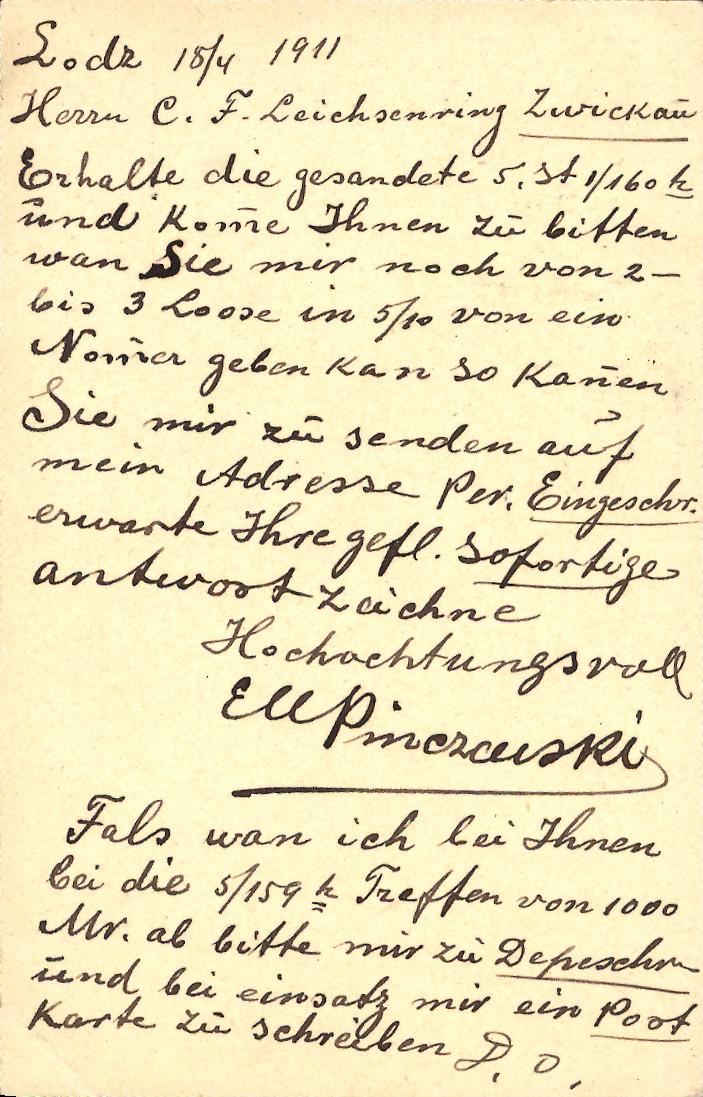 Lodz 18/4 1911
Herrn C. F. Leichsenring Zwickau
Erhalte die gesandete 5. St 1/160 h
und kom̄e Ihnen zu bitten
wan Sie mir noch von 2 –
bis 3 Loose in 5/10 von ein
Nom̄er geben kan so kan̄en
Sie mir zu senden auf
mein Adresse per. Eingeschr.
erwarte Ihre gefl. sofortige
antwort zeichne
Hochachtungsvoll
Pinczewski
Fals wan ich bei Ihnen
bei die 5/159 h Treffen von 1000
Mr. ab bitte mir zu Depeschr
und bei einsatz mir ein Post
Karte zu schreiben D. O.